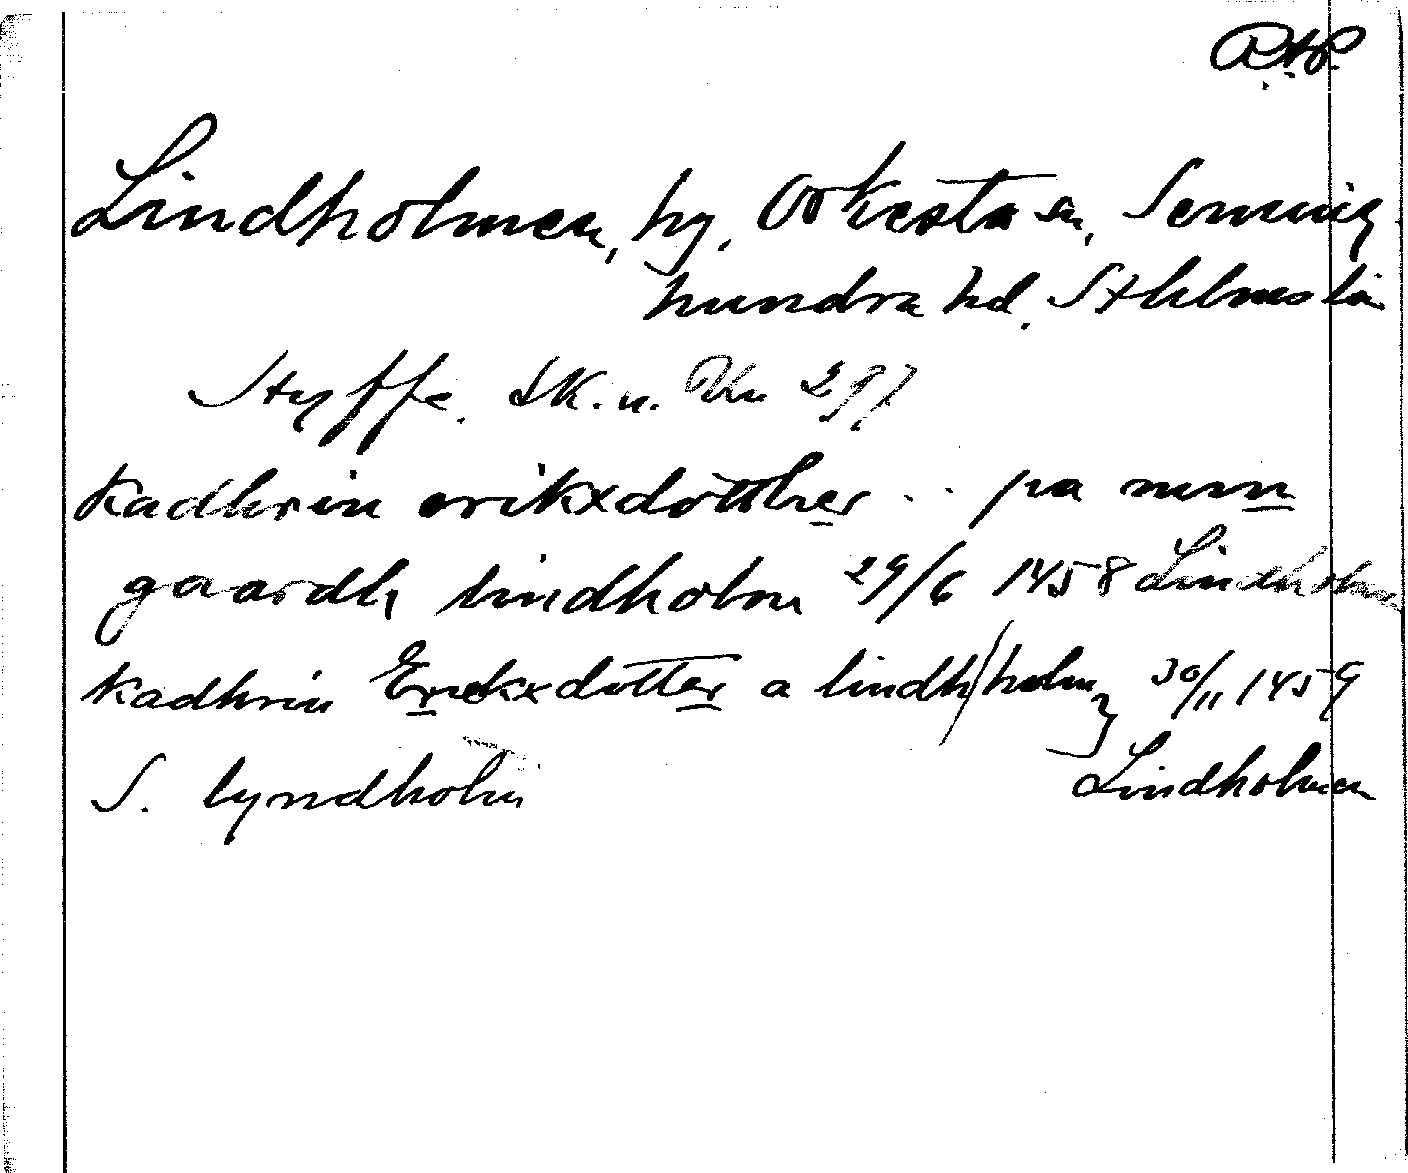 RAP.
Lindholmen, hg, Orkesta sn, Seming
hundra hd. Sthlms län
Styffe. Sk. u. Un 297
Kadhrin erikxdotther .. pa minn
gaardh lindholm 29/6 1458 Lindholm
Kadhrin Erickxdotter a lindh/holm 30/11 1459
S. lyndholm Lindholmen